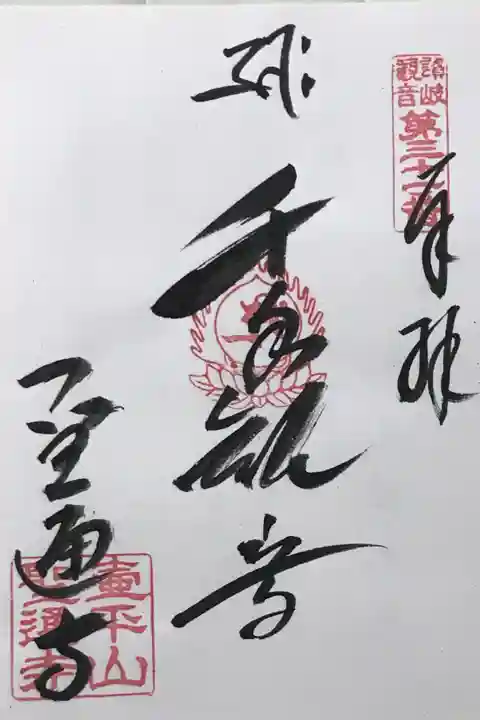 讃岐
観音
第三十一番
奉拝
千手観音
聖通寺
壺平山
聖通寺